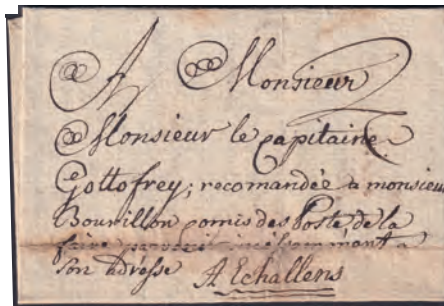 A Monsieur
Monsieur le capitaine
Gottofrey; recomandée a monsieur
Bourillon comis des Poste, de la
faire parvenir incessamment a
son adresse
A Echallens